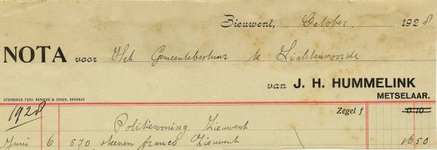 Zieuwent, October 1928
NOTA voor Het Gemeentebestuur te Lichtenvoorde
van J. H. HUMMELINK
METSELAAR.
1928 Zegel f 0.10
Politiewoning Zieuwent
Juni 6 570 steenen franco Zieuwent 16 50